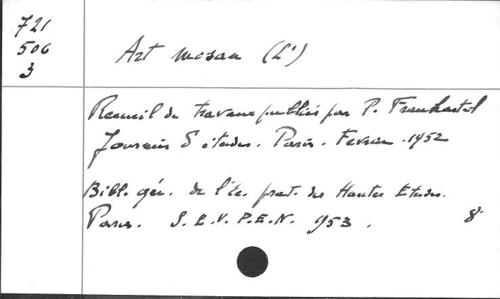 721
506
3
Art mosan (L')
Recueil de travaux publiés par P. Francastel
Journées d'études. Paris. Février .1952
Bibl. gén. de l'éc. prat. des Hautes Etudes.
Paris. S.E.V.P.E.N. 1953. 8°